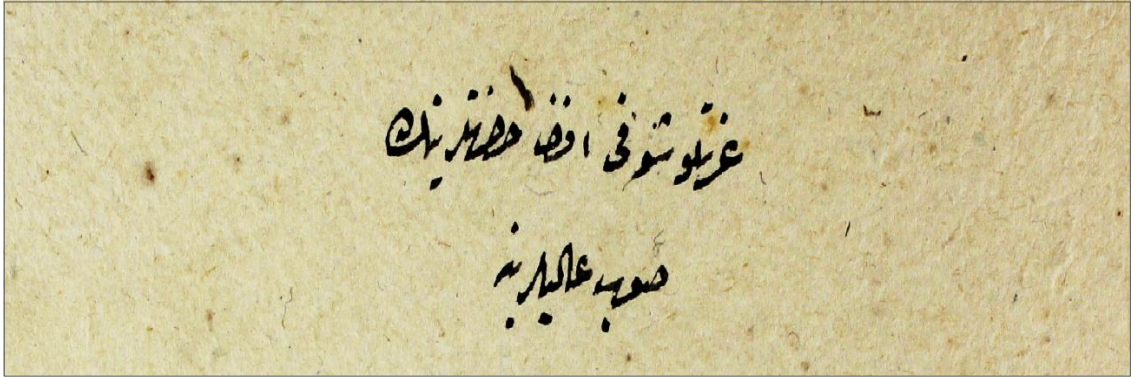 عزتلو شوقی افندی حضرتلرینك
صوب عالیلرینه